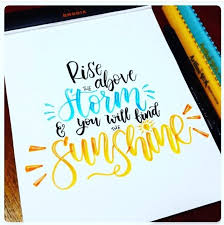 RHODIA
Rise
above
THE
Storm
& you will find
THE
Sunshine